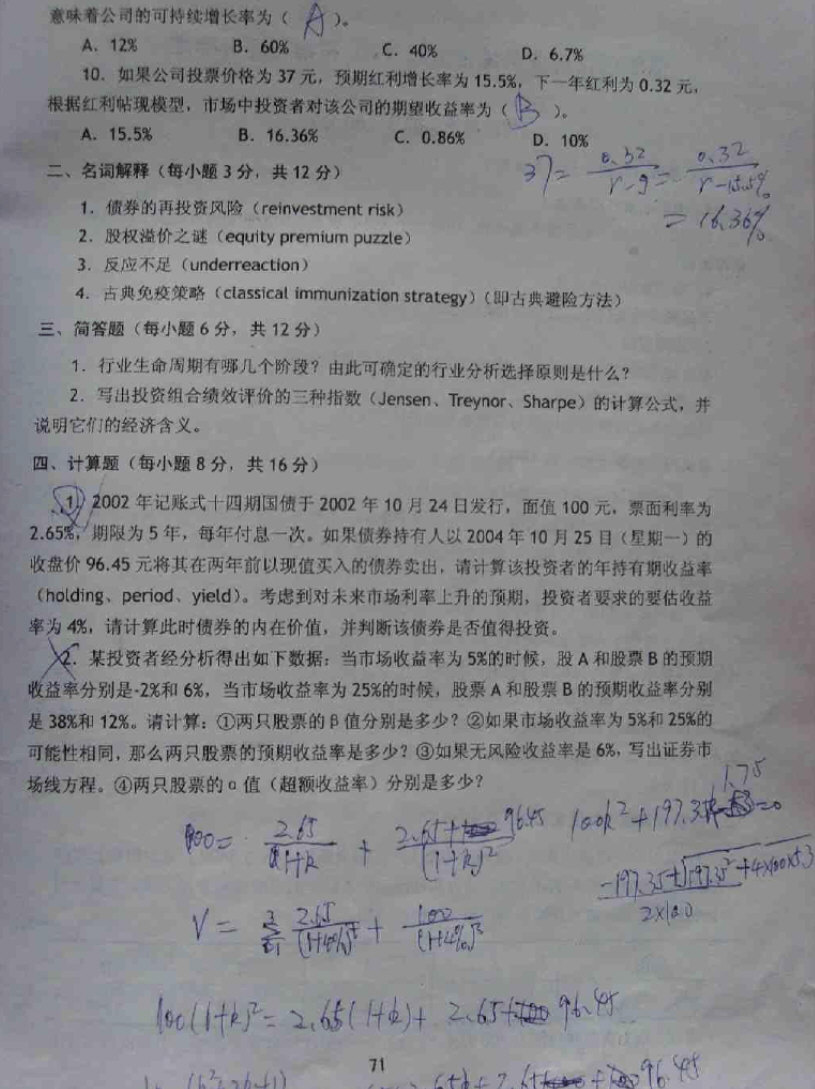 意味着公司的可持续增长率为（ A ）。
A．12% B．60% C．40% D．6.7%
10．如果公司投票价格为 37 元，预期红利增长率为 15.5%，下一年红利为 0.32 元，
根据红利帖现模型，市场中投资者对该公司的期望收益率为（ B ）。
A．15.5% B．16.36% C．0.86% D．10%
37= 0.32/r-g = 0.32/r-15.5%
= 16.36%
二、名词解释（每小题 3 分，共 12 分）
1．债券的再投资风险（reinvestment risk）
2．股权溢价之谜（equity premium puzzle）
3．反应不足（underreaction）
4．古典免疫策略（classical immunization strategy）（即古典避险方法）
三、简答题（每小题 6 分，共 12 分）
1．行业生命周期有哪几个阶段？由此可确定的行业分析选择原则是什么？
2．写出投资组合绩效评价的三种指数（Jensen、Treynor、Sharpe）的计算公式，并
说明它们的经济含义。
四、计算题（每小题 8 分，共 16 分）
1．2002 年记账式十四期国债于 2002 年 10 月 24 日发行，面值 100 元，票面利率为
2.65%，期限为 5 年，每年付息一次。如果债券持有人以 2004 年 10 月 25 日（星期一）的
收盘价 96.45 元将其在两年前以现值买入的债券卖出，请计算该投资者的年持有期收益率
（holding、period、yield）。考虑到对未来市场利率上升的预期，投资者要求的要估收益
率为 4%，请计算此时债券的内在价值，并判断该债券是否值得投资。
2．某投资者经分析得出如下数据：当市场收益率为 5%的时候，股 A 和股票 B 的预期
收益率分别是-2%和 6%，当市场收益率为 25%的时候，股票 A 和股票 B 的预期收益率分别
是 38%和 12%。请计算：①两只股票的 β 值分别是多少？②如果市场收益率为 5%和 25%的
可能性相同，那么两只股票的预期收益率是多少？③如果无风险收益率是 6%，写出证券市
场线方程。④两只股票的 α 值（超额收益率）分别是多少？
100= 2.65/1+k + 2.65+96.45/(1+k)² 100k²+197.35k 1.75 =0
-197.35+√197.35²+4×100×5.3
2×100
V= 3 2.65/(1+4%)ᵗ + 100/(1+4%)³
100(1+k)²= 2.65(1+k)+ 2.65+ 96.45
71
96.45